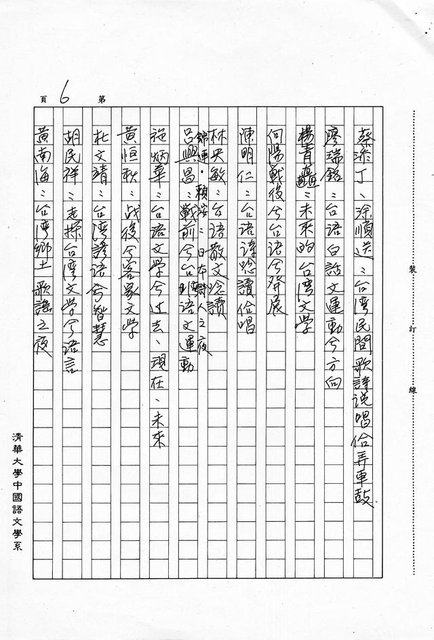 第6頁
裝訂線
蔡添丁、涂順從：台灣民間歌謠說唱佮弄車鼓
廖瑞銘：台語白話文運動兮方向
楊青矗：未來的台灣文學
向陽：戰後兮台語兮發展
陳明仁：台語詩唸讀佮唱
林央敏：台語散文唸讀
錦連、賴洝：日本詩人之夜
呂興昌：戰前兮台灣語文運動
施炳華：台語文學兮過去、現在、未來
黃恒秋：戰後兮客家文學
杜文靖：台灣諺語兮智慧
胡民祥：走揣台灣文學兮語言
黃南海：台灣鄉土歌謠之夜
清華大學中國語文學系